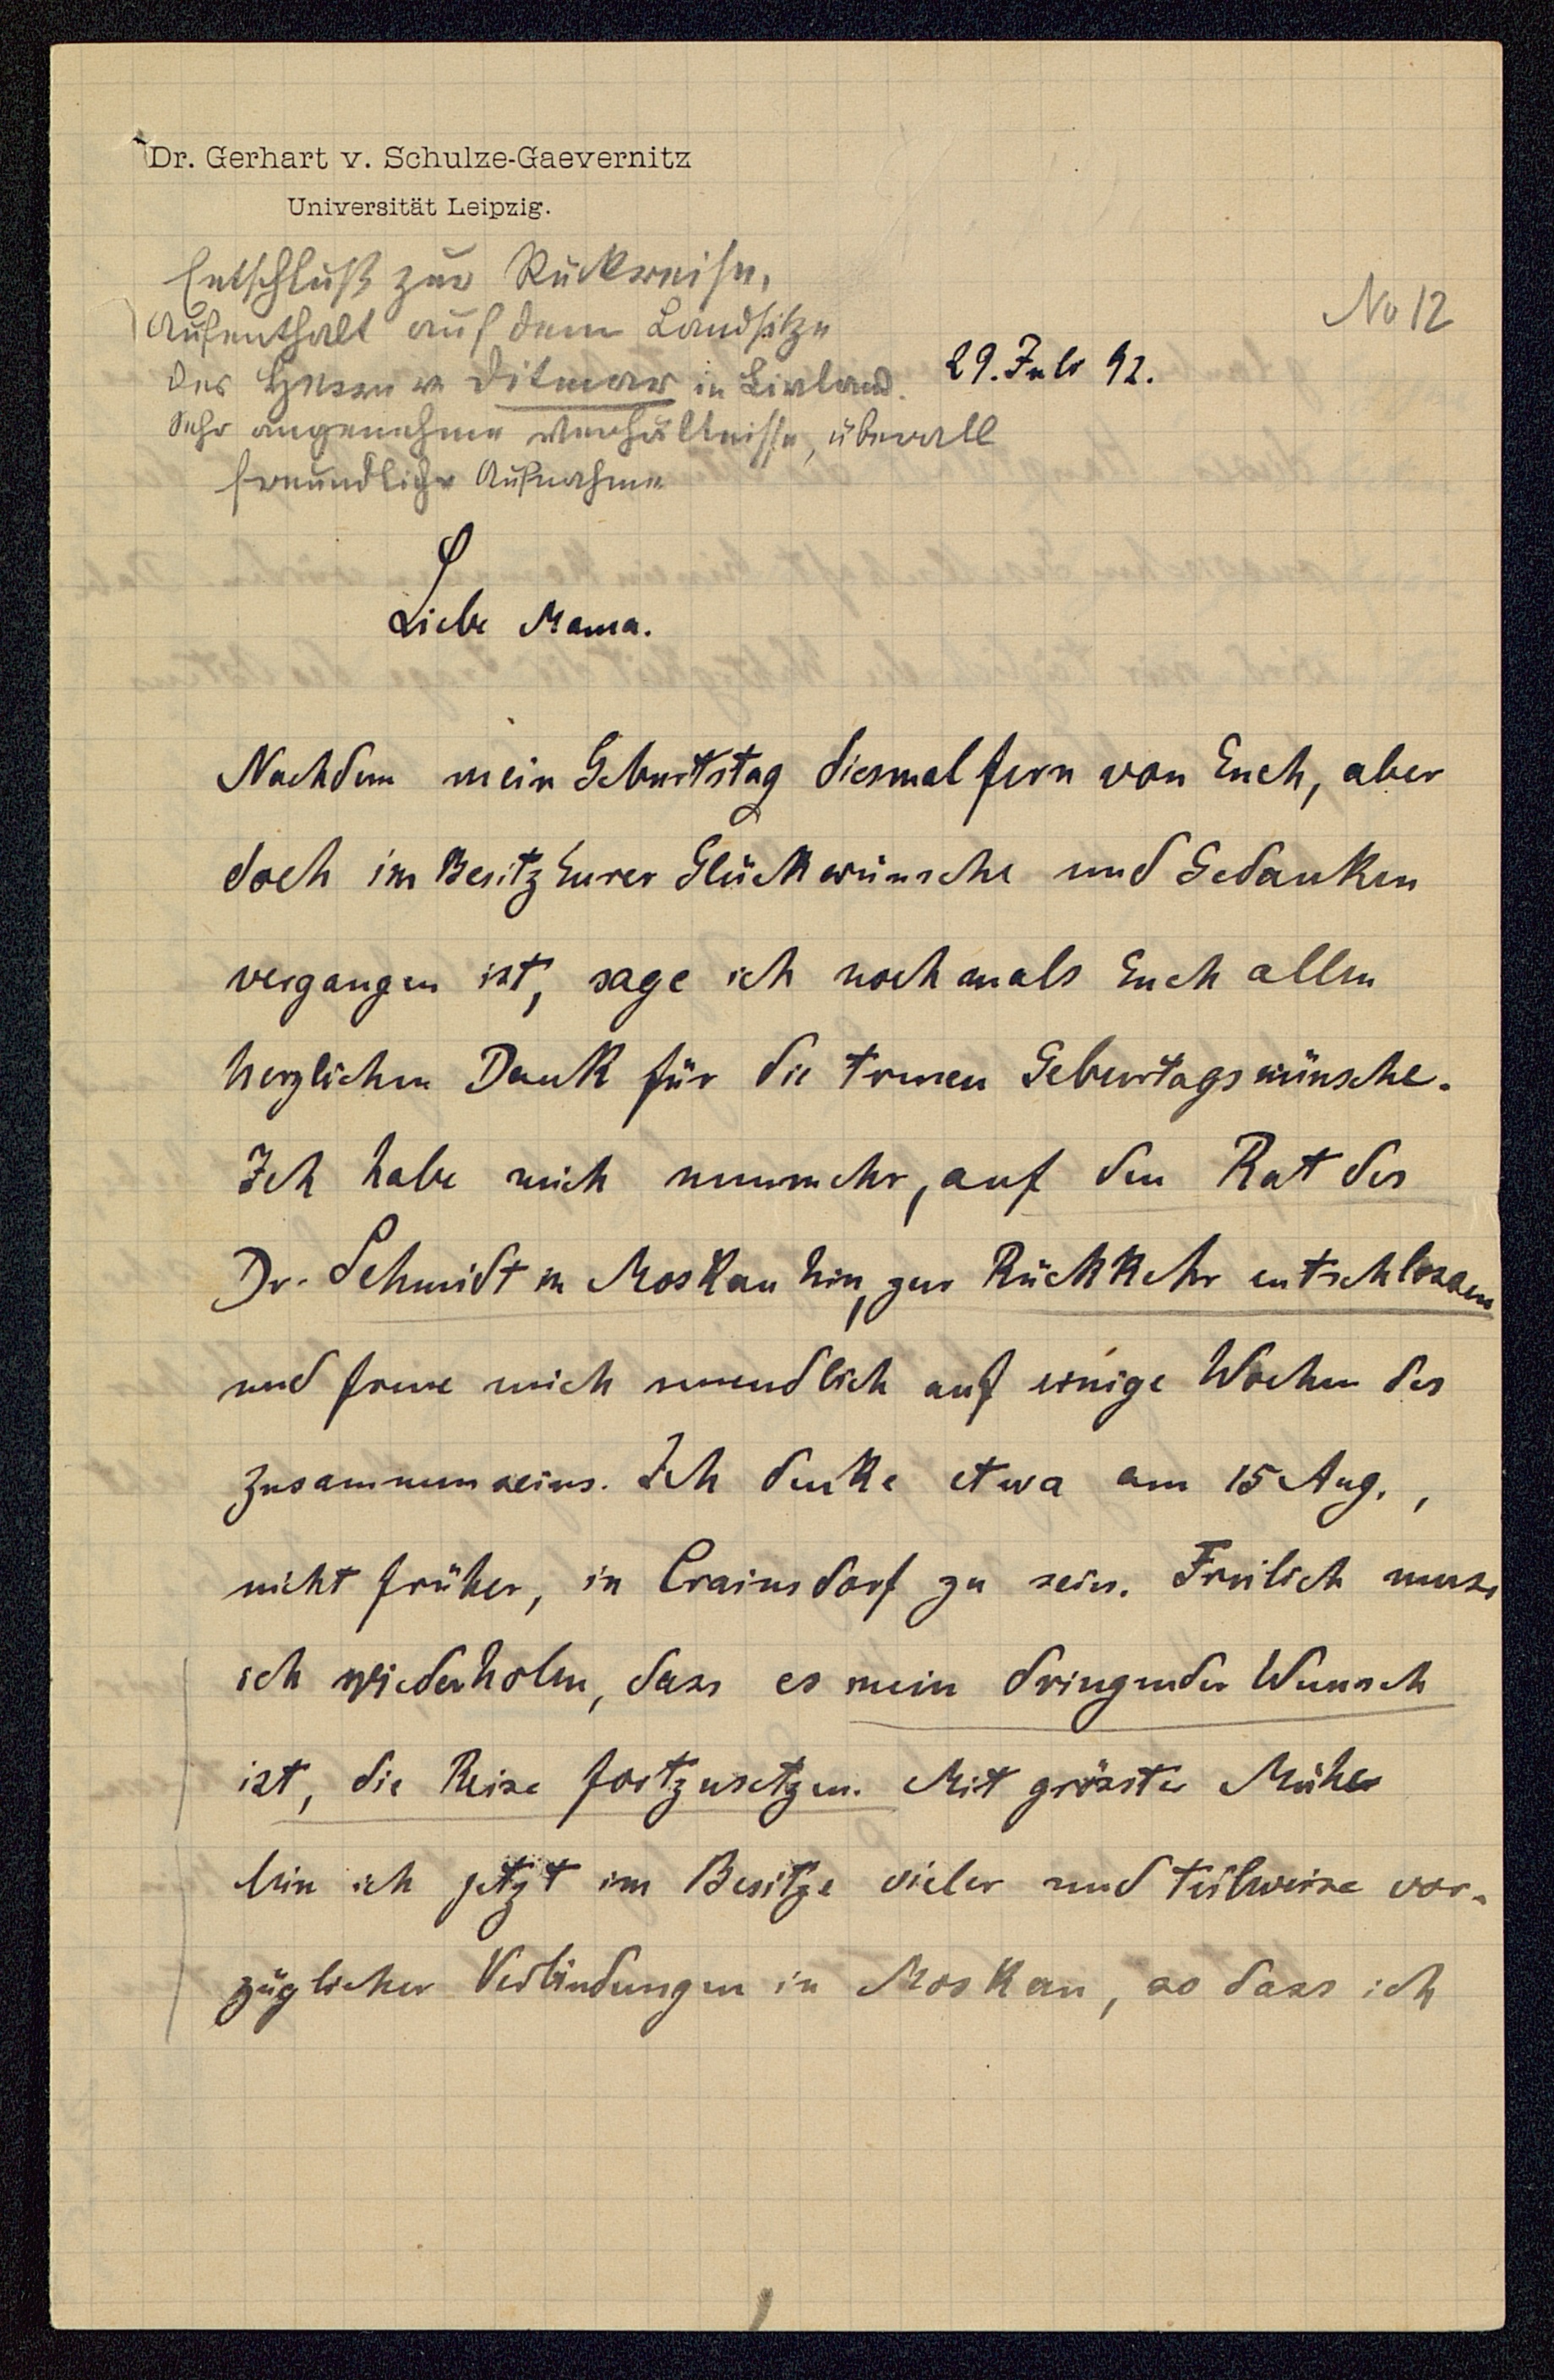 Dr. Gerhart v. Schulze-Gaevernitz
Universität Leipzig.
Entschluß zur Rückreise,
Aufenthalt auf dem Landsitze
des Herrn v Ditmar in Livland.
Sehr angenehme Verhältnisse, überall
freundliche Aufnahme
No 12
29. Juli 92.
Liebe Mama.
Nachdem mein Geburtstag diesmal fern von Euch, aber
doch im Besitz Eurer Glückwünsche und Gedanken
vergangen ist, sage ich nochmals Euch allen
herzlichen Dank für die treuen Geburtagswünsche.
Ich habe mich nunmehr, auf den Rat des
Dr. Schmidt in Moskau hin, zur Rückkehr entschlossen
und freue mich unendlich auf einige Wochen des
Zusammenseins. Ich denke etwa am 15 Aug.,
nicht früher, in Crainsdorf zu sein. Freilich muss
ich wiederholen, dass es mein dringender Wunsch
ist, die Reise fortzusetzen. Mit grösster Mühe
bin ich jetzt im Besitze vieler und teilweise vor-
züglicher Verbindungen in Moskau, so dass ich